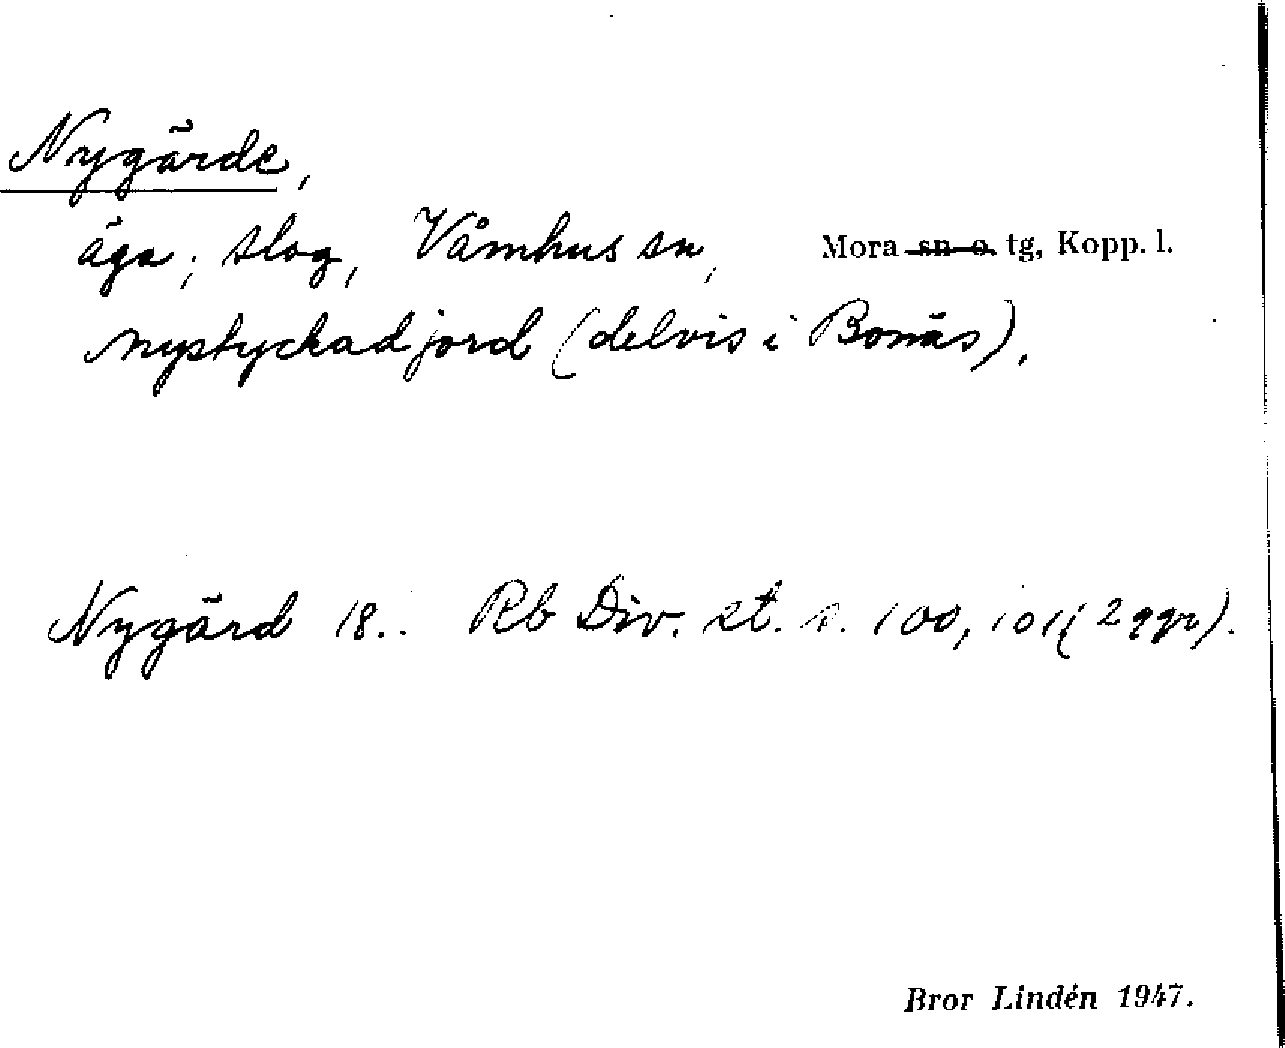 Nygärde,
äga; slog, Våmhus sn, Mora sn o. tg, Kopp. l.
nystyckad jord (delvis i Bonäs).
Nygärd 18.. Rb Div. st. s. 100, 101 (2 ggr).
Bror Lindén 1947.